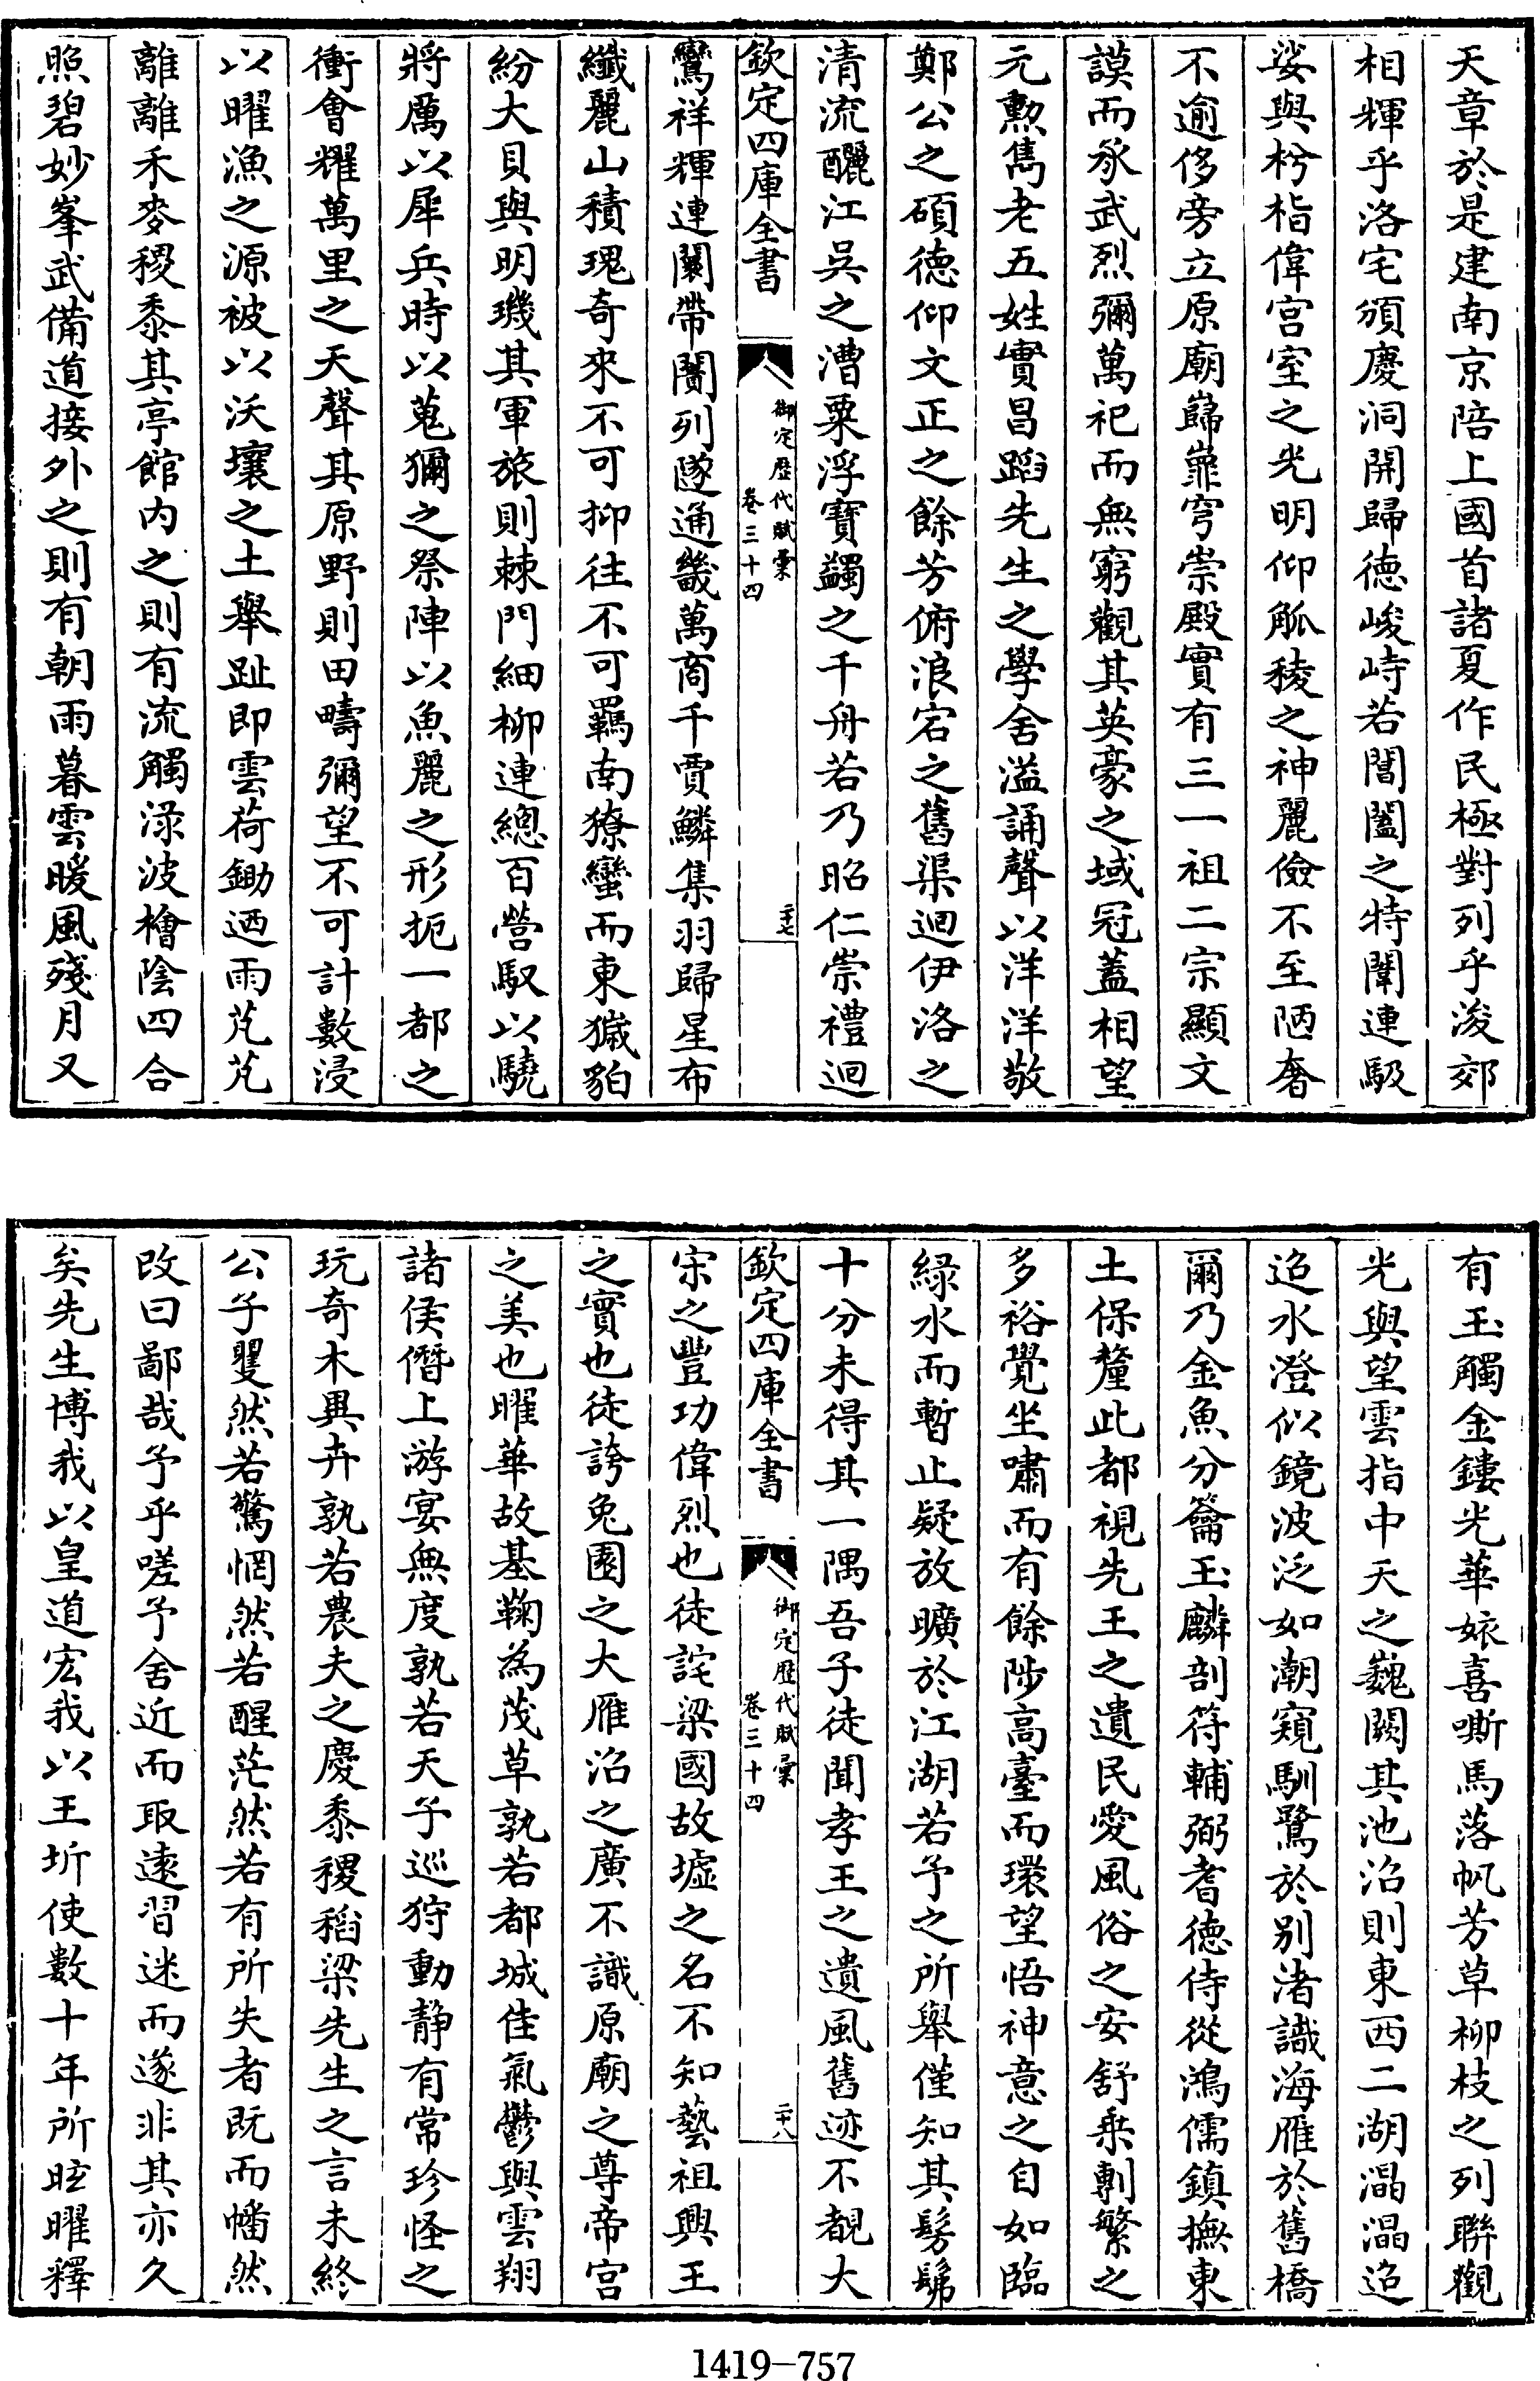 天章於是建南京陪上國首諸夏作民極對列乎浚郊
相輝乎洛宅頒慶洞開歸德峻峙若閶闔之特闢連馺
娑與枍栺偉宮室之光明仰觚稜之神麗儉不至陋奢
不逾侈旁立原廟巋嶵穹崇殿實有三一祖二宗顯文
謨而承武烈彌萬祀而無窮觀其英豪之域冠蓋相望
元勲雋老五姓實昌蹈先生之學舍溢誦聲以洋洋敬
鄭公之碩德仰文正之餘芳俯浪宕之舊渠迴伊洛之
清流釃江吳之漕粟浮寶蠲之千舟若乃昭仁崇禮迴
欽定四庫全書
御定歷代賦彙
卷三十四
二十七
鸞祥輝連闤帶闠列隧通畿萬商千賈鱗集羽歸星布
纖麗山積瑰奇來不可抑往不可羈南獠蠻而東獩貊
紛大貝與明璣其軍旅則棘門細柳連總百營馭以驍
將厲以犀兵時以蒐獮之祭陣以魚麗之形扼一都之
衝會耀萬里之天聲其原野則田疇彌望不可計數浸
以曜漁之源被以沃壤之土舉趾即雲荷鋤迺雨芃芃
離離禾麥稷黍其亭館内之則有流觴淥波檜陰四合
照碧妙峯武備道接外之則有朝雨暮雲暖風殘月又
有玉觴金鏤光華娭喜嘶馬落帆芳草柳枝之列聯觀
光與望雲指中天之巍闕其池沼則東西二湖灟灟迢
迢水澄似鏡波泛如潮窺馴鷺於别渚識海雁於舊橋
爾乃金魚分籥玉麟剖符輔弼耆德侍從鴻儒鎮撫東
土保釐此都視先王之遺民愛風俗之安舒乘剸繁之
多裕覺坐嘯而有餘陟高臺而環望悟神意之自如臨
緑水而暫止疑放曠於江湖若予之所舉僅知其髣髴
十分未得其一隅吾子徒聞孝王之遺風舊迹不覩大
欽定四庫全書
御定歷代賦彙
卷三十四
二十八
宋之豐功偉烈也徒詫梁國故墟之名不知藝祖興王
之實也徒誇兔園之大雁沼之廣不識原廟之尊帝宮
之美也曜華故基鞠為茂草孰若都城佳氣鬱與雲翔
諸侯僭上游宴無度孰若天子巡狩動静有常珍怪之
玩奇木異卉孰若農夫之慶黍稷稻梁先生之言未終
公子矍然若驚惘然若醒茫然若有所失者既而幡然
改曰鄙哉予乎嗟予舍近而取遠習迷而遂非其亦久
矣先生博我以皇道宏我以王圻使數十年所眩曜釋
1419-757